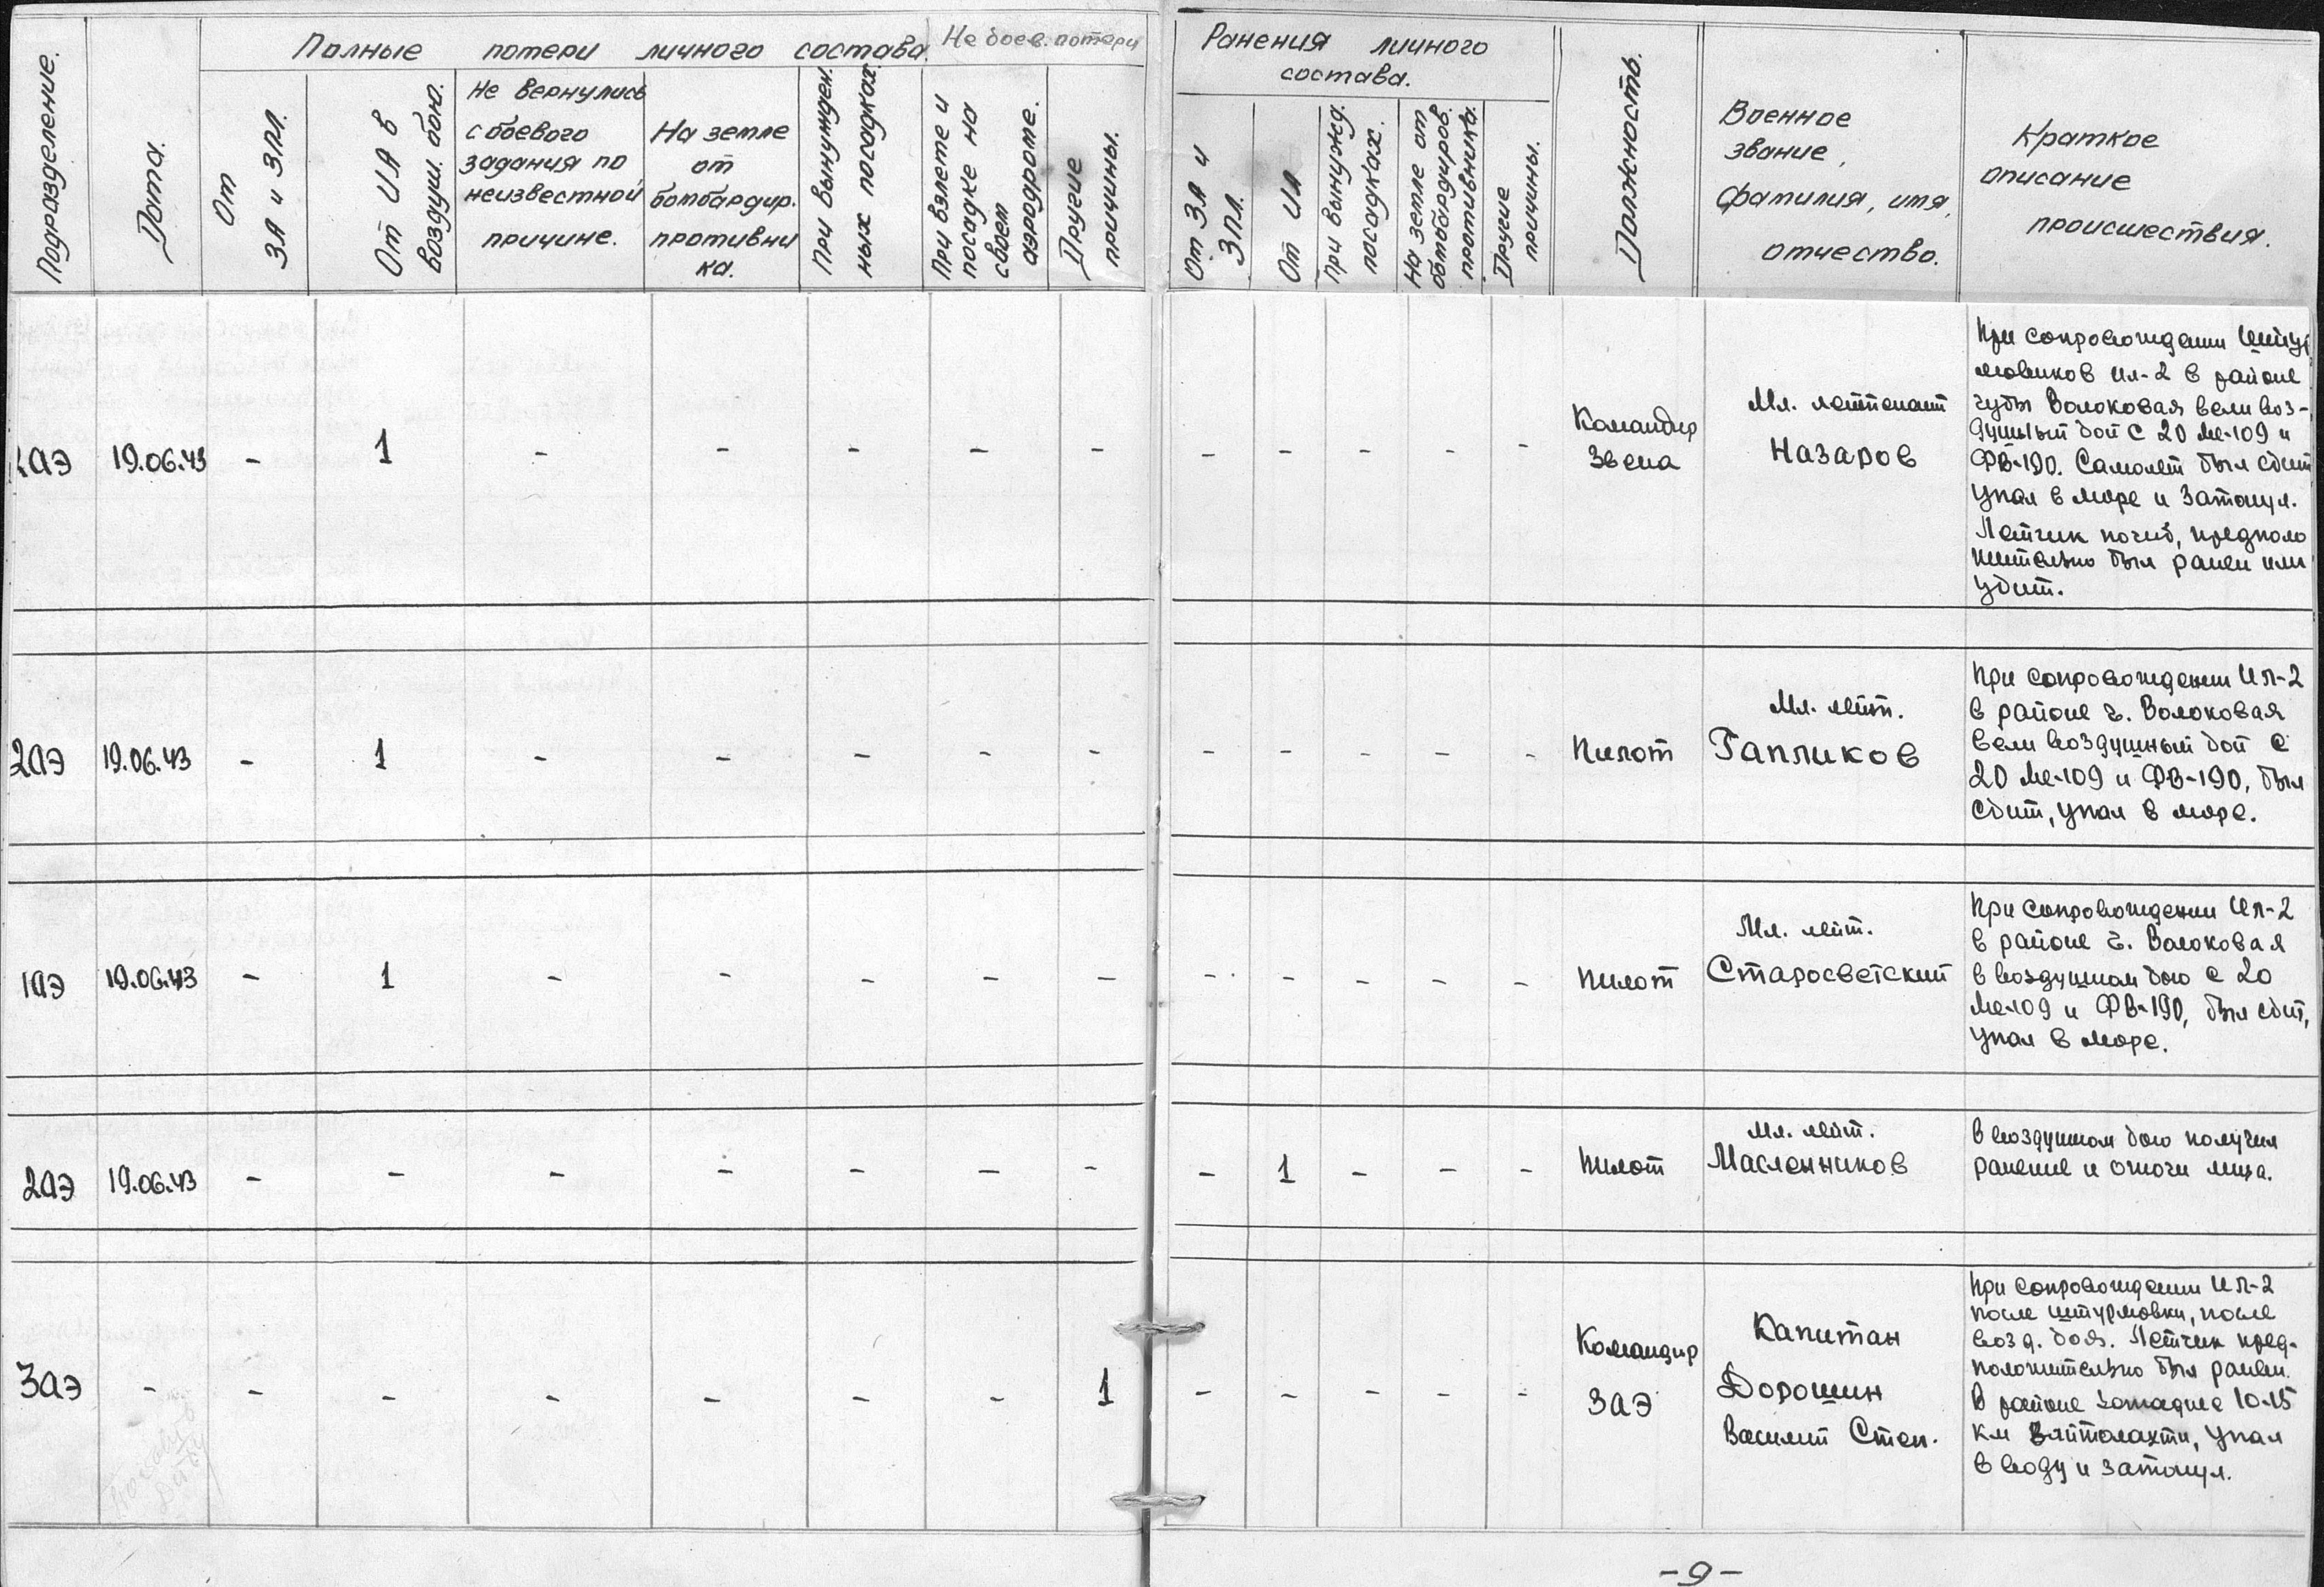 Подразделение.
Дата.
Полные потери личного состава.
От
ЗА и ЗПЛ.
От ИА в
воздуш. бою.
Не вернулись
с боевого
задания по
неизвестной
причине.
На земле
от
бомбардир.
противни
ка.
При вынужден.
ных посадках.
Не боев. потери
При взлете и
посадке на
своем
аэродроме.
Другие
причины.
Ранения личного
состава.
От ЗА и
ЗПЛ.
От ИА
При вынужд.
посадках.
На земле от
бомбардиров.
противника.
Другие
причины.
Должность.
Военное
звание,
фамилия, имя,
отчество.
Краткое
описание
происшествия.
АЭ 19.06.43 - 1 - - - - - - - - - -
Командир
звена
Мл. лейтенант
Назаров
При сопровождении штур
мовиков Ил-2 в районе
губы Волоковая вели воз-
душный бой с 20 Ме-109 и
ФВ-190. Самолет был сбит
упал в море и затонул.
Летчик погиб, предполо
жительно был ранен или
убит.
2АЭ 19.06.43 - 1 - - - - - - - - - -
Пилот
Мл. лейт.
Гапликов
При сопровождении Ил-2
в районе г. Волоковая
вели воздушный бой с
20 Ме-109 и ФВ-190, был
сбит, упал в море.
1АЭ 19.06.43 - 1 - - - - - - - - - -
Пилот
Мл. лейт.
Старосветский
При сопровождении Ил-2
в районе г. Волоковая
в воздушном бою с 20
Ме-109 и ФВ-190, был сбит,
упал в море.
2АЭ 19.06.43 - - - - - - - - - 1 - - -
Пилот
Мл. лейт.
Масленников
В воздушном бою получил
ранение и ожоги лица.
3АЭ - - - - - - - 1 - - - - -
Командир
3АЭ
Капитан
Дорошин
Василий Степ.
При сопровождении Ил-2
после штурмовки, после
возд. боя. Летчик пред-
положительно был ранен.
В районе западнее 10-15
км Вайтолахти, упал
в воду и затонул.
-9-